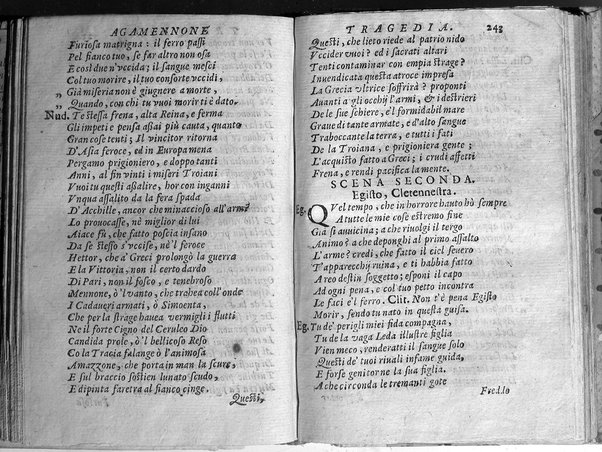 AGAMENNONE
Furiosa matrigna: il ferro passi
Pel fianco tuo, se far altro non osa
E così due n'vccida; il sangue mesci
Col tuo morire, il tuo consorte vccidi,
„ Già miseria non è giugnere a morte,
„ Quando, con chi tu vuoi morir ti è dato.
Nud. Te stessa frena, alta Reina, e ferma
Gli impeti e pensa assai più cauta, quanto
Gran cose tenti; Il vincitor ritorna
D'Asia feroce, ed in Europa mena
Pergamo prigioniero, e doppo tanti
Anni, al fin vinti i miseri Troiani
Vuoi tu questi assalire, hor con inganni
Vnqua assalito da la fera spada
D'Acchille, ancor che minaccioso all'arme
Lo prouocasse, nè miglior di lui
Aiace fù, che fatto poscia insano
Da se stesso s'vccise, nè'l feroce
Hettor, che a' Greci prolongò la guerra
E la Vittoria, non il certo dardo
Di Pari, non il fosco, e tenebroso
Mennone, ò'l vanto, che trahea coll'onde
I Cadaueri armati, ò Simoenta,
Che per la strage hauea vermigli i flutti
Ne il forte Cigno del Ceruleo Dio
Candida prole, ò'l bellicoso Reso
Co la Tracia falange ò l'animosa
Amazzone, che porta in man la scure,
E sul braccio sostien lunato scudo,
E dipinta faretra al fianco cinge.
Questi,
TRAGEDIA. 243
Questi, che lieto riede al patrio nido
Vccider vuoi? ed i sacrati altari
Tenti contaminar con empia strage?
Inuendicata questa atroce impresa
La Grecia vltrice soffrirà? proponti
Auanti a gli occhij l'armi, & i destrieri
De le sue schiere, e'l formidabil mare
Graue di tante armate; e d'alto sangue
Traboccante la terra, e tutti i fati
De la Troiana, e prigioniera gente;
L'acquisto fatto a Greci; i crudi affetti
Frena, e rendi pacifica la mente.
SCENA SECONDA.
Egisto, Cletennestra.
Eg. Quel tempo, che in horrore hauto hò sempre
A tutte le mie cose estremo fine
Già si auuicina; a che riuolgi il tergo
Animo? a che deponghi al primo assalto
L'arme? credi, che fatto il ciel seuero
T'apparecchij ruina, e ti habbia fatto
A reo destin soggetto; esponi il capo
Ad ogni pena, e col tuo petto incontra
Le faci e'l ferro. Clit. Non t'è pena Egisto
Morir, sendo tu nato in questa guisa.
Eg. Tu de' perigli miei fida compagna,
Tu de la vaga Leda illustre figlia
Vien meco, renderatti il sangue solo
Questi de' tuoi riuali infame guida,
E forse genitor ne la sua figlia.
A che circonda le tremanti gote
Freddo